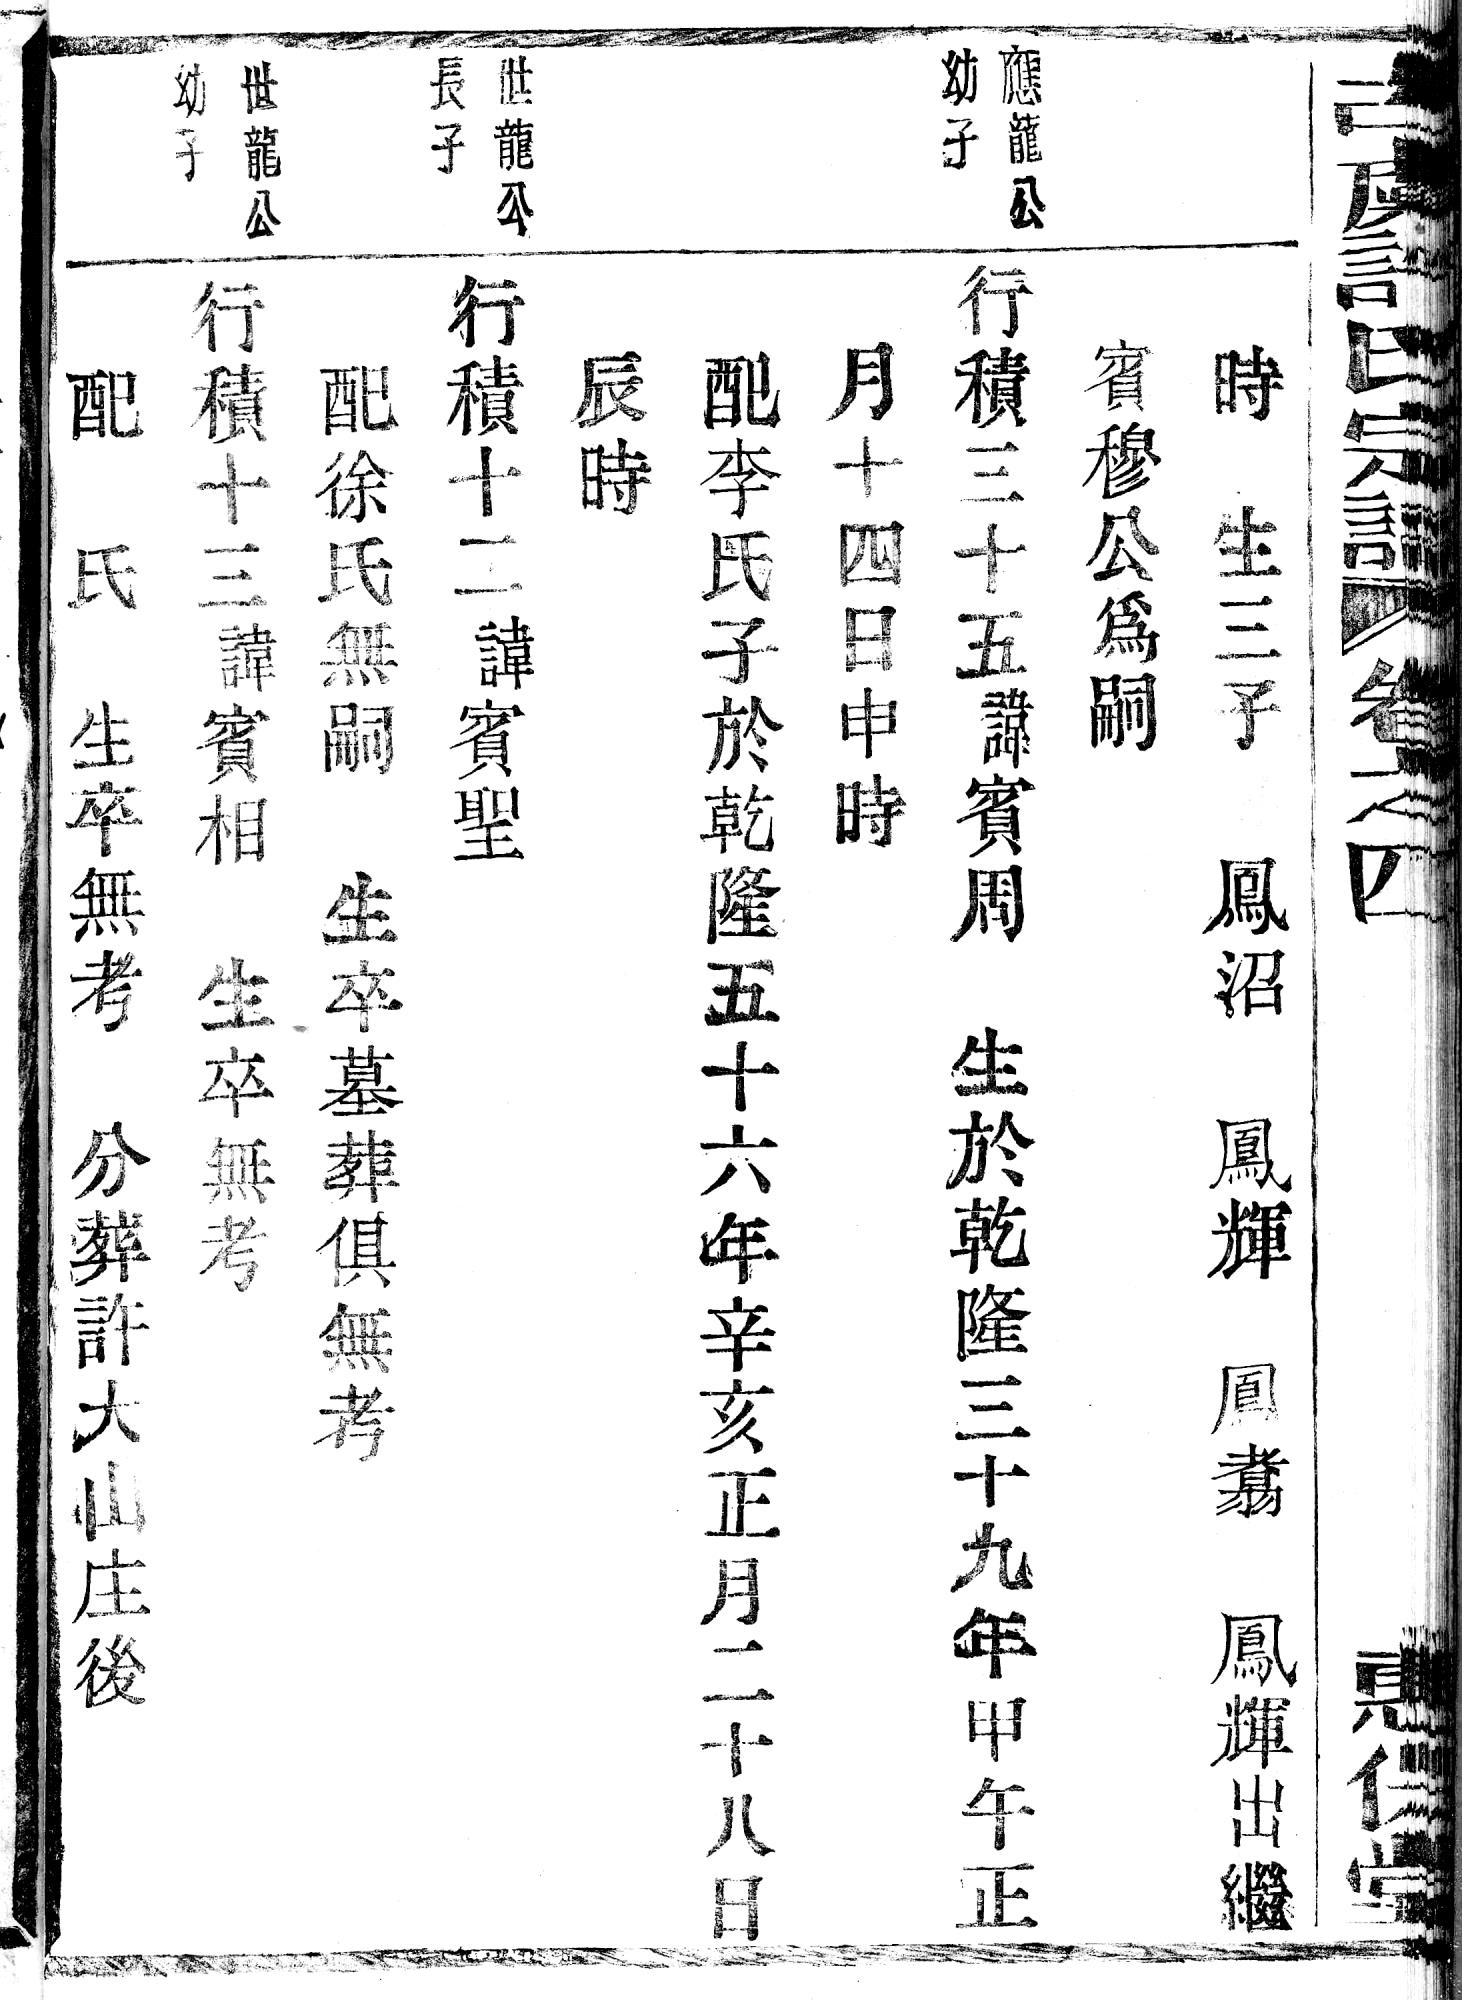 古虞許氏宗譜 卷之四 惠仁堂
時 生三子 鳳沼 鳳輝 鳳翥 鳳輝出繼
賓穆公爲嗣
應龍公
幼子
行積三十五諱賓周 生於乾隆三十九年甲午正
月十四日申時
配李氏子於乾隆五十六年辛亥正月二十八日
辰時
世龍公
長子
行積十二諱賓聖
配徐氏無嗣 生卒墓葬俱無考
世龍公
幼子
行積十三諱賓相 生卒無考
配 氏 生卒無考 分葬許大山庄後